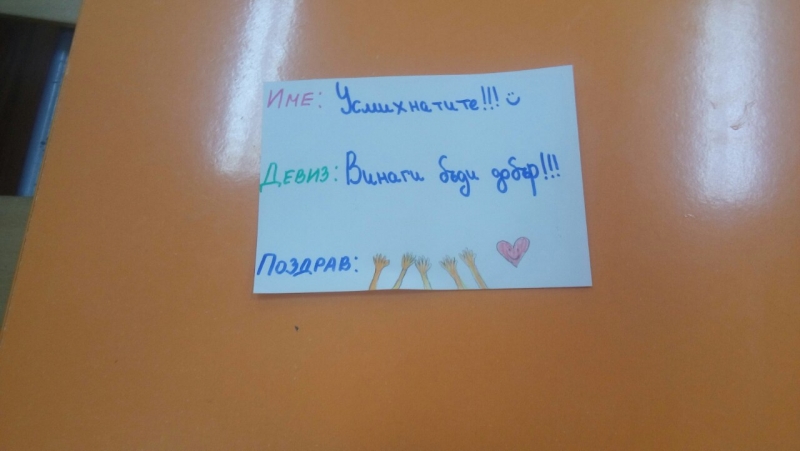 Име: Усмихнатите!!!
Девиз: Винаги бъди добър!!!
Поздрав: